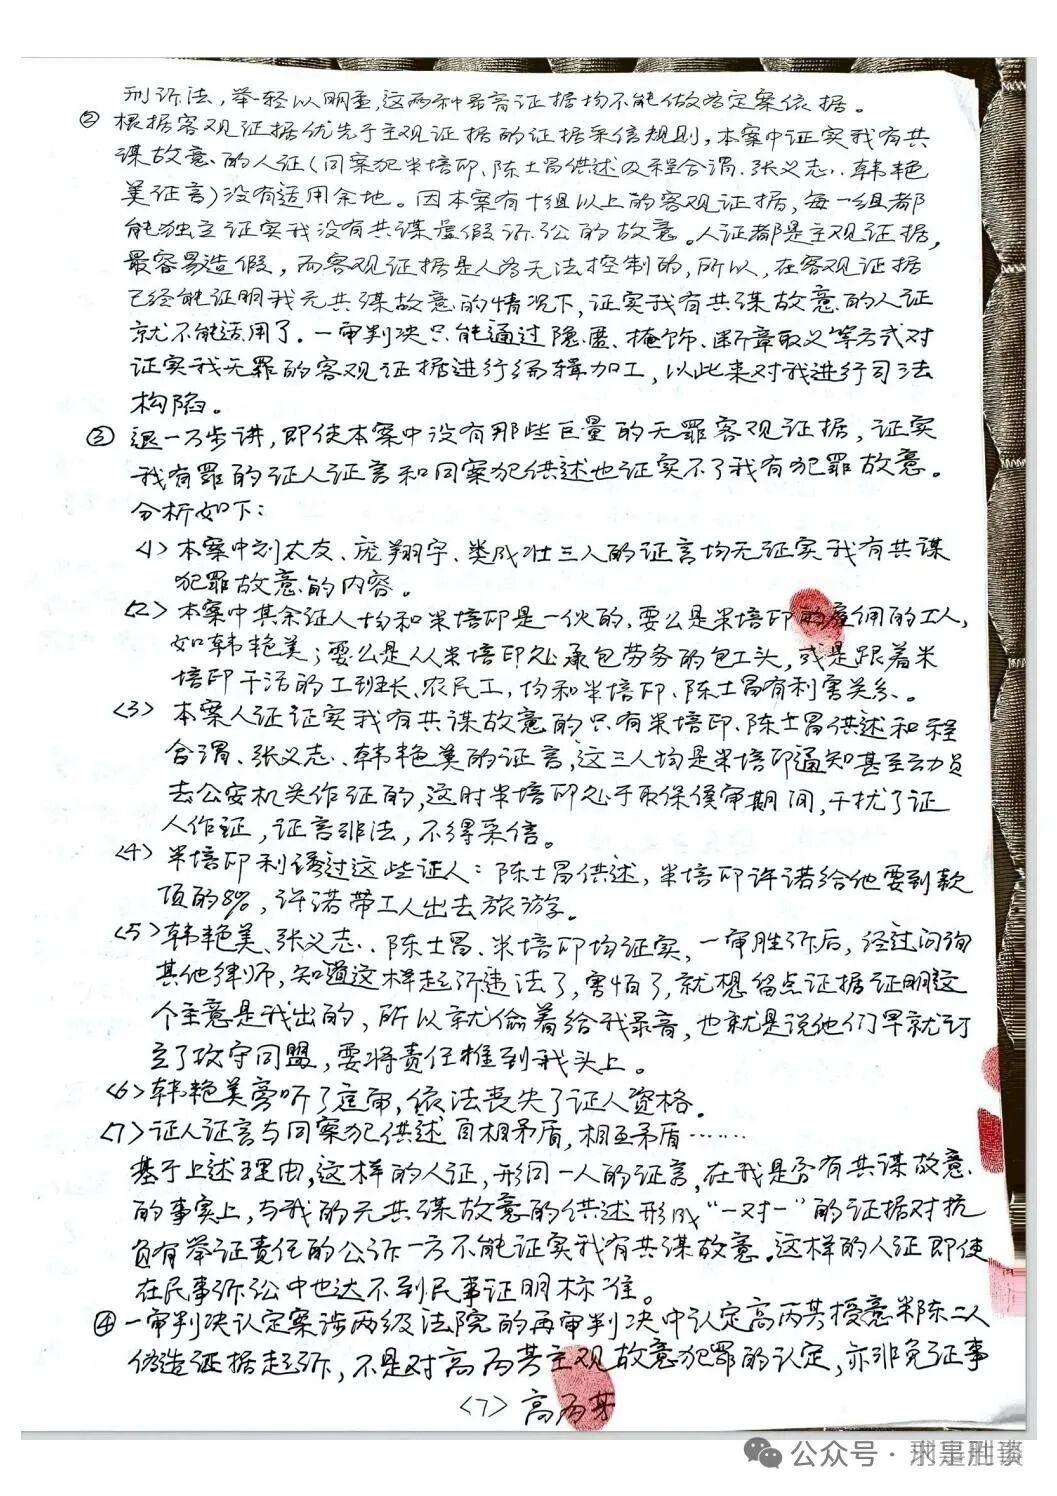 刑诉法,举轻以明重,这两种言证据均不能做为定案依据。
② 根据客观证据优先于主观证据的证据采信规则,本案中证实我有共
谋故意的人证(同案犯米培印、陈士昌供述及程合渭、张义志、韩艳
美证言)没有适用余地。因本案有十组以上的客观证据,每一组都
能独立证实我没有共谋虚假诉讼的故意。人证都是主观证据,
最容易造假,而客观证据是人为无法控制的,所以,在客观证据
已经能证明我无共谋故意的情况下,证实我有共谋故意的人证
就不能适用了。一审判决只能通过隐匿、掩饰、断章取义等方式对
证实我无罪的客观证据进行编辑加工,以此来对我进行司法
构陷。
③ 退一万步讲,即使本案中没有那些巨量的无罪客观证据,证实
我有罪的证人证言和同案犯供述也证实不了我有犯罪故意。
分析如下:
<1> 本案中刘太友、庞翔宇、娄成壮三人的证言均无证实我有共谋
犯罪故意的内容。
<2> 本案中其余证人均和米培印是一伙的,要么是米培印的雇佣的工人,
如韩艳美;要么是从米培印处承包劳务的包工头,或是跟着米
培印干活的工班长、农民工,均和米培印、陈士昌有利害关系。
<3> 本案人证证实我有共谋故意的只有米培印、陈士昌供述和程
合渭、张义志、韩艳美的证言,这三人均是米培印通知甚至动员
去公安机关作证的,这时米培印处于取保候审期间,干扰了证
人作证,证言非法,不得采信。
<4> 米培印利诱过这些证人:陈士昌供述,米培印许诺给他要到款
项的8%,许诺带工人出去旅游。
<5> 韩艳美、张义志、陈士昌、米培印均证实,一审胜诉后,经过问询
其他律师,知道这样起诉违法了,害怕了,就想留点证据证明这
个主意是我出的,所以就偷着给我录音,也就是说他们早就订
立了攻守同盟,要将责任推到我头上。
<6> 韩艳美旁听了庭审,依法丧失了证人资格。
<7> 证人证言与同案犯供述自相矛盾,相互矛盾……
基于上述理由,这样的人证,形同一人的证言,在我是否有共谋故意
的事实上,与我的无共谋故意的供述形成“一对一”的证据对抗
负有举证责任的公诉一方不能证实我有共谋故意。这样的人证即使
在民事诉讼中也达不到民事证明标准。
④ 一审判决认定案涉两级法院的再审判决中认定高丙芳授意米陈二人
伪造证据起诉,不是对高丙芳主观故意犯罪的认定,亦非免证事
<7> 高丙芳
公众号·